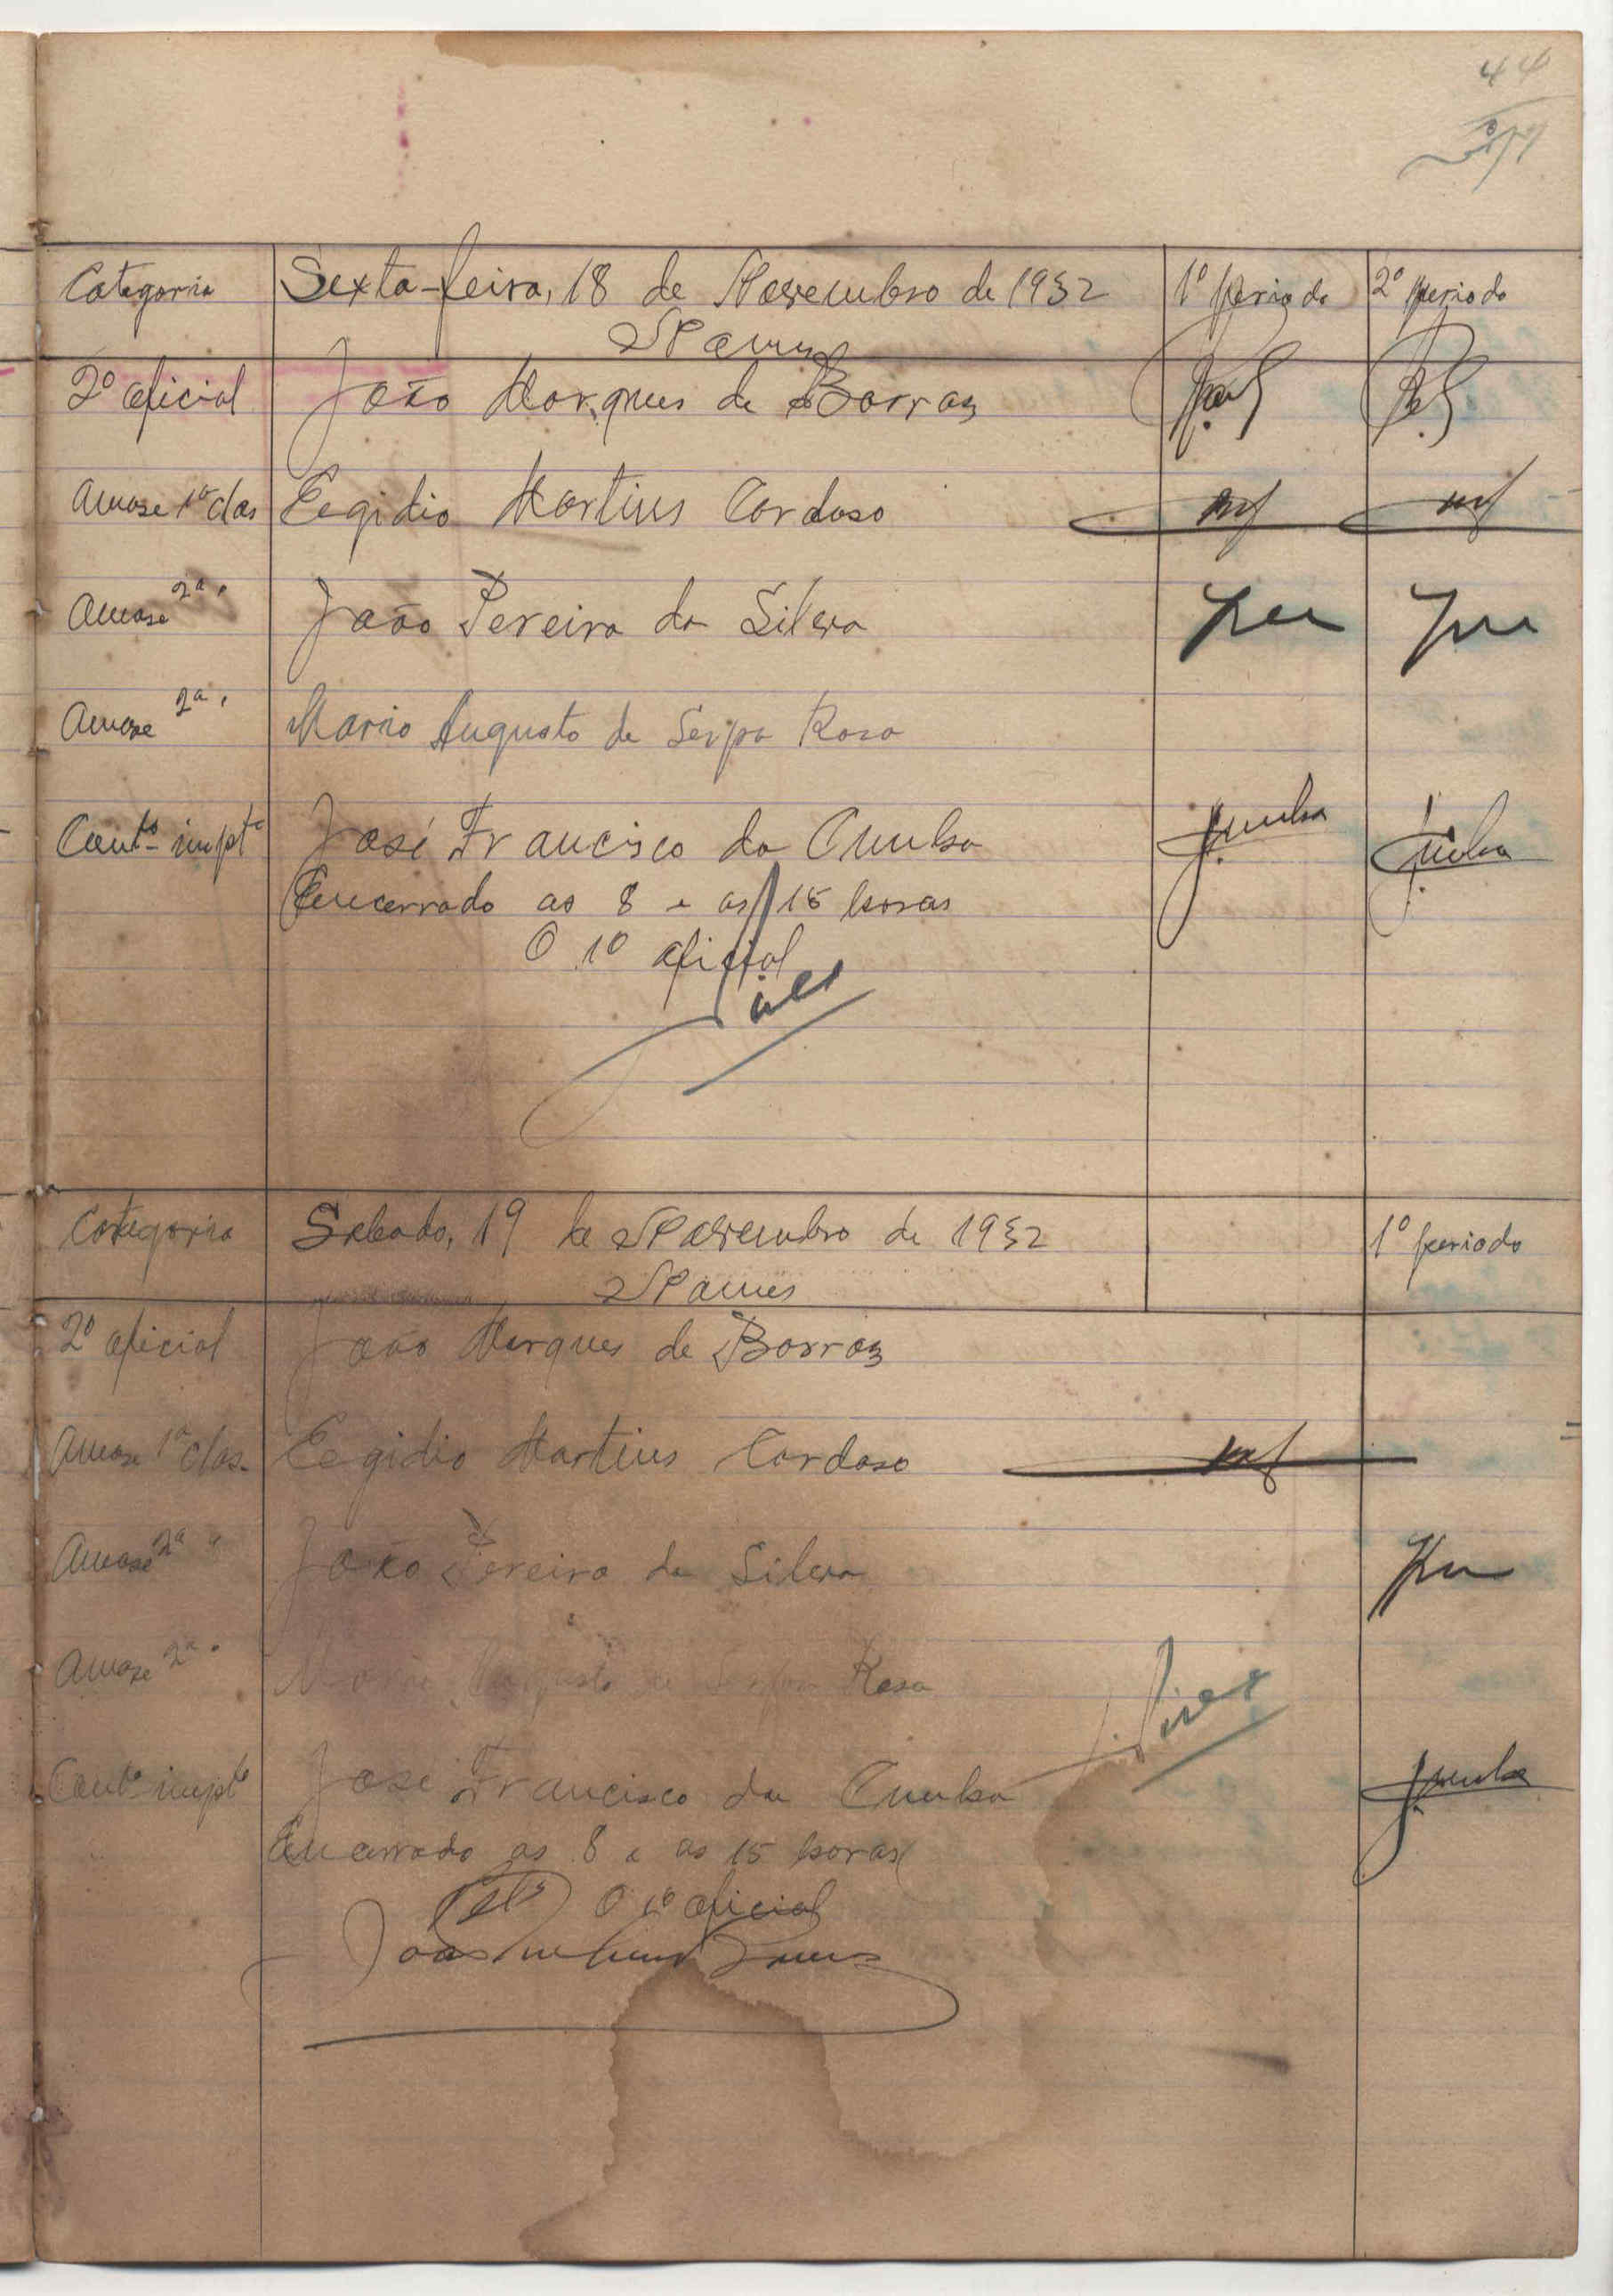 44
Categoria Sexta-feira, 18 de Novembro de 1932 1º periodo 2º periodo
Nomes
2º oficial João Marques de Barros
Amase 1ª clas Eegidio Martins Cardoso
Amase 2ª " João Pereira da Silva
Amase 2ª " Mario Augusto de Serpa Rosa
Contº impte José Francisco da Cunha JCunha JCunha
Encerrado as 8 e as 15 horas
O 1º oficial
Pires
Categoria Sabado, 19 de Novembro de 1932 1º periodo
Nomes
2º oficial João Marques de Barros
Amase 1ª clas. Eegidio Martins Cardoso
Amase 2ª " João Pereira da Silva
Amase 2ª " Mario Augusto de Serpa Rosa
Pires
Contº impte José Francisco da Cunha JCunha
Encerrado as 8 e as 15 horas
O 1º oficial
João